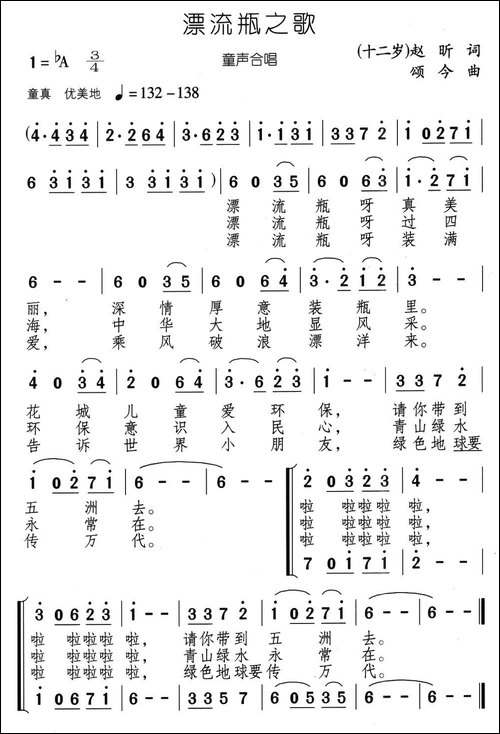 漂流瓶之歌
1=♭A 3/4 童声合唱 (十二岁)赵昕 词
颂今 曲
童真 优美地 ♩=132-138
(4·434|2·264|3·623|1·131|3372|1 0271|
6 3131|3 3131)|6 0 35|6 0 63|1·271|
漂流瓶呀真美
漂流瓶呀过四
漂流瓶呀装满
6--|6 0 35|6 0 64|3·212|3--|
丽，深情厚意装瓶里。
海，中华大地显风采。
爱，乘风破浪漂洋来。
4 0 34|2 0 64|3·623|1--|3372|
花城儿童爱环保，请你带到
环保意识入民心，青山绿水
告诉世界小朋友，绿色地球要
1 0271|6--|6--|2 0723|4--|
五洲去。啦 啦啦啦 啦，
永常在。啦 啦啦啦 啦，
传万代。啦 啦啦啦 啦，
7 0171|2--|
3 0623|1--|3372|1 0271|6--|6--|
啦 啦啦啦 啦，请你带到五洲去。
啦 啦啦啦 啦，青山绿水永常在。
啦 啦啦啦 啦，绿色地球要传万代。
1 0671|6--|3372|6 0535|6--|6--|